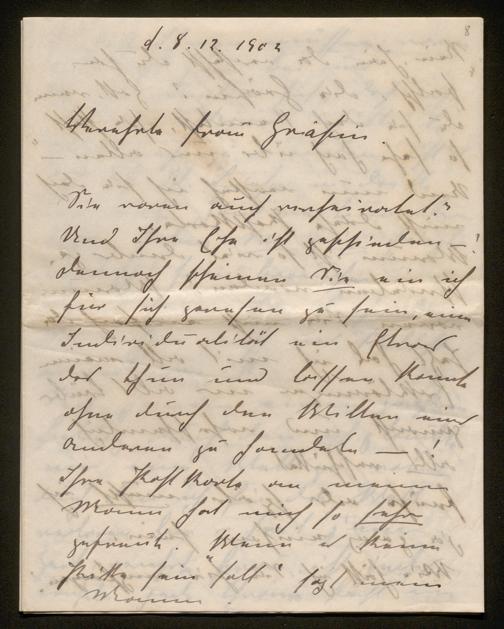 8
d. 8. 12. 1902
Verehrte Frau Gräfin.
Sie waren auch verheiratet?
Und Ihre Ehe ist geschieden –
dennoch scheinen Sie ein ich
für sich gewesen zu sein, eine
Individualität ein Etwas
das thun und lassen konnte
ohne durch den Willen eines
anderen zu handeln – !
Ihre Postkarte an meinen
Mann hat mich so sehr
gefreut. Wenn es keine
sein "soll" sagt mein
Mann.